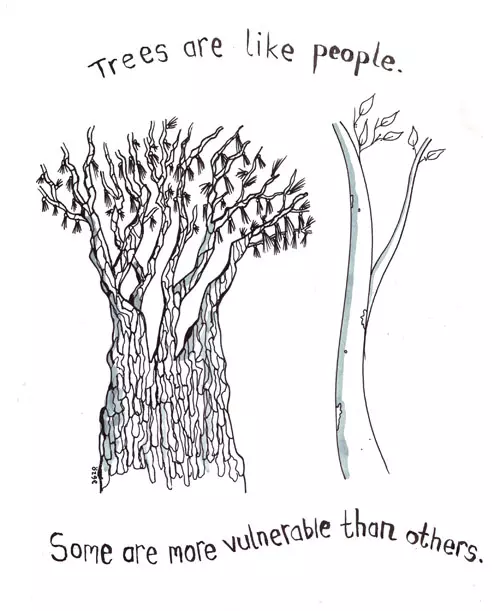 Trees are like people.
Some are more vulnerable than others.